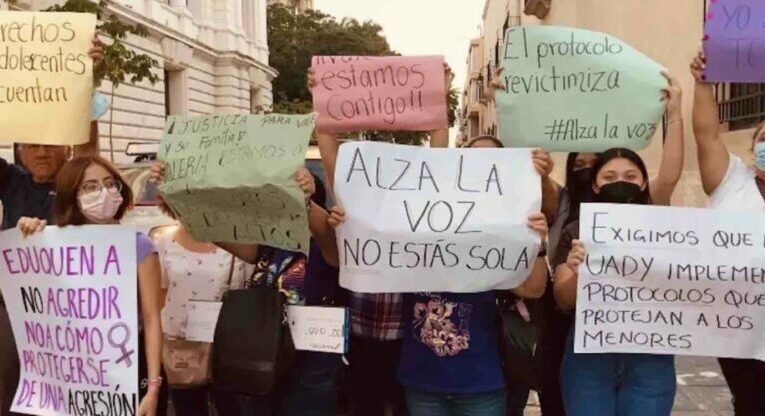 rechos
adolescentes
cuentan
¡JUSTICIA PARA
y su Familia!
ESTAMOS
ESTAMOS
CONTIGO!!
El protocolo
revictimiza
#Alza la voz
YO
TE
EDUQUEN A
NO AGREDIR
NO A CÓMO
PROTEGERSE
DE UNA AGRESIÓN
ALZA LA
VOZ
NO ESTÁS SOLA
EXIGIMOS QUE
UADY IMPLEMEN
PROTOCOLOS QUE
PROTEJAN A LOS
MENORES